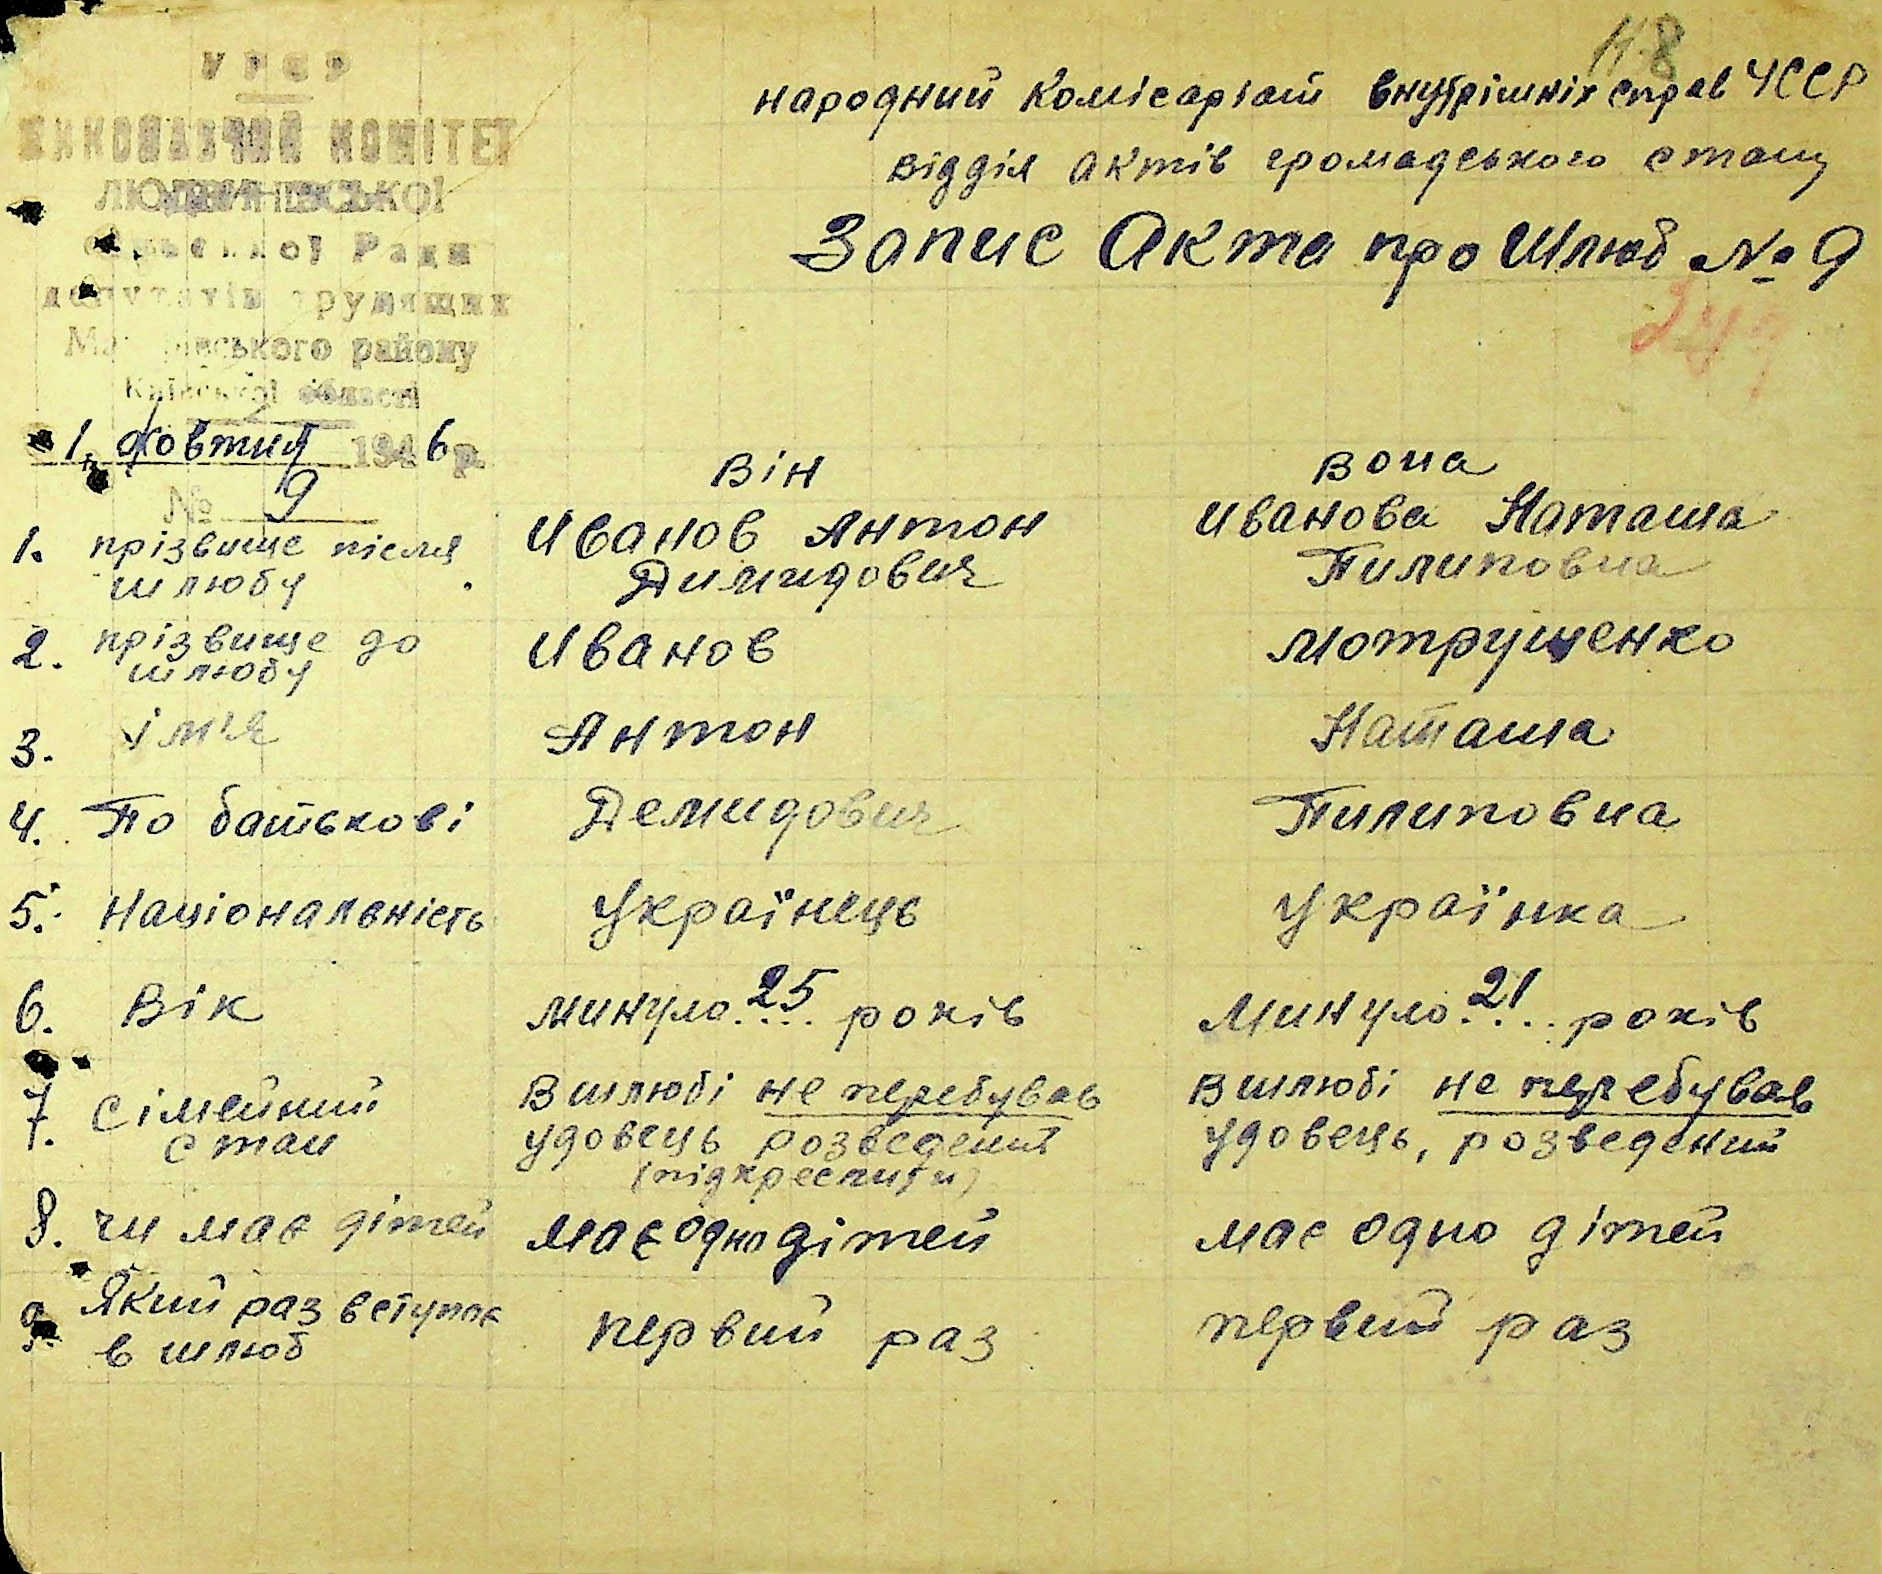 118
УРСР
ВИКОНАВЧИЙ КОМІТЕТ
сільської Ради
депутатів трудящих
Макарівського району
Київської області
1 жовтня 1946 р.
№ 9
народний комісаріат внутрішніх справ УССР
відділ актів громадського стану
Запис Акта про Шлюб № 9
він вона
1. прізвище після шлюбу Иванов Антон Димидович Иванова Наташа Пилиповна
2. прізвище до шлюбу Иванов Мотрущенко
3. імья Антон Наташа
4. По батькові Демидович Пилиповна
5. Національність Українець Українка
6. Вік минуло 25 років Минуло 21 років
7. Сімейний стан В шлюбі не перебував удовець розведений (підкреслити) В шлюбі не перебував удовець, розведений
8. чи має дітей має одно дітей має одно дітей
9. Який раз вступає в шлюб первий раз первий раз